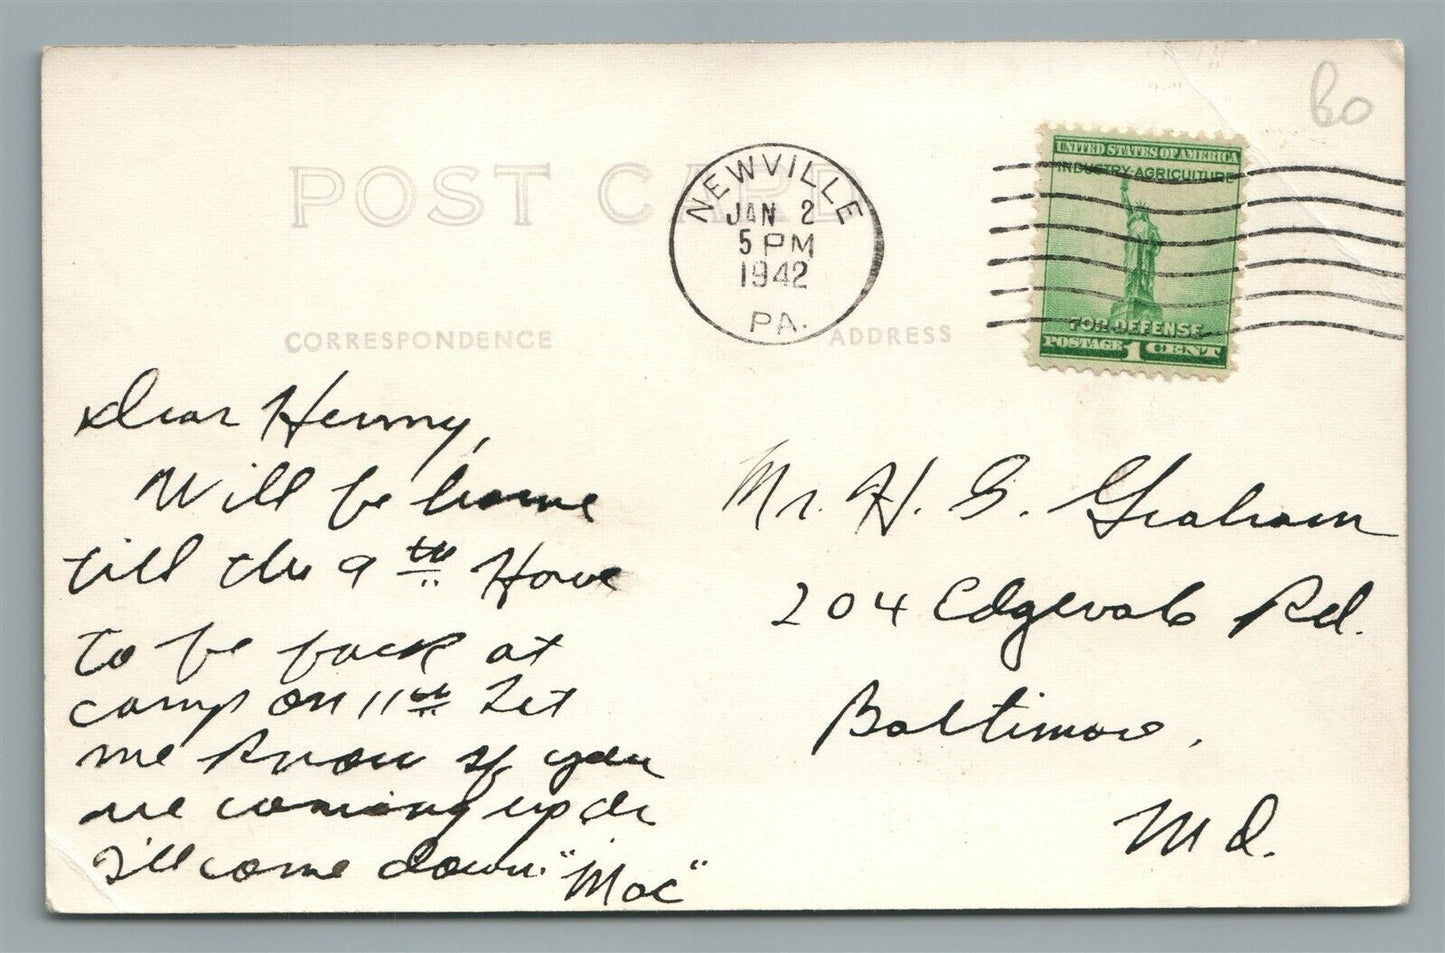 60
POST CARD
NEWVILLE
JAN 2
5 PM
1942
PA.
UNITED STATES OF AMERICA
INDUSTRY·AGRICULTURE
FOR DEFENSE
POSTAGE 1 CENT
CORRESPONDENCE
ADDRESS
Dear Henny,
Will be home
till the 9th Have
to be back at
camp on 11th Let
me know if you
are coming up or
I'll come down. "Mac"
Mr. H. G. Graham
204 Edgevale Rd.
Baltimore,
Md.